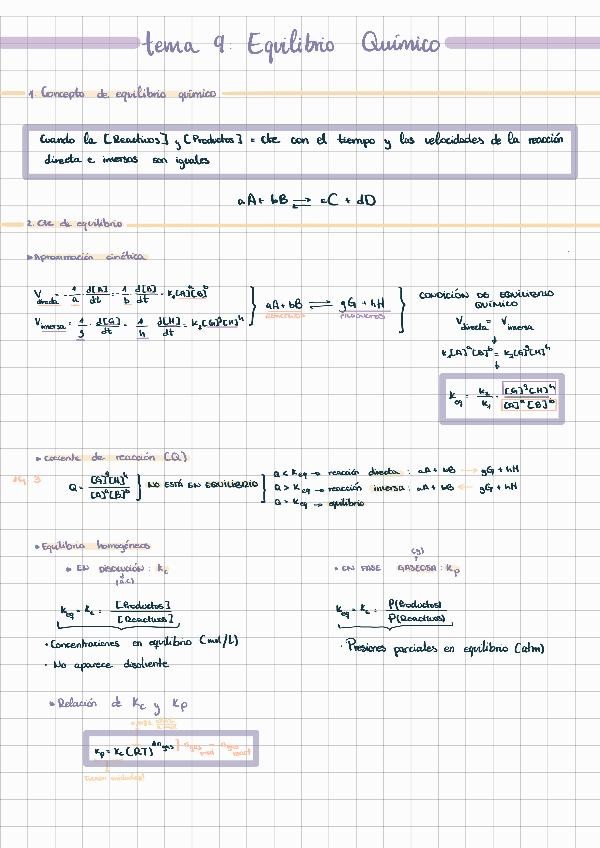 tema 9: Equilibrio Químico
1. Concepto de equilibrio químico
Cuando la [Reactivos] y [Productos] = cte con el tiempo y las velocidades de la reacción
directa e inversas son iguales
aA + bB ⇌ cC + dD
2. Cte de equilibrio
Aproximación cinética
V directa = - 1/a d[A]/dt = - 1/b d[B]/dt = K₁[A]ᵃ[B]ᵇ
V inversa = 1/g · d[G]/dt = 1/h d[H]/dt = K₂[G]ᵍ[H]ʰ
aA + bB ⇌ gG + hH
REACTIVOS PRODUCTOS
CONDICIÓN DE EQUILIBRIO
QUÍMICO
V directa = V inversa
K₁[A]ᵃ[B]ᵇ = K₂[G]ᵍ[H]ʰ
K eq = K₂/K₁ = [G]ᵍ[H]ʰ/[A]ᵃ[B]ᵇ
Cociente de reacción (Q)
Q = [G]ᵍ[H]ʰ/[A]ᵃ[B]ᵇ } NO ESTÁ EN EQUILIBRIO
Q < K eq → reacción directa : aA + bB → gG + hH
Q > K eq → reacción inversa : aA + bB ← gG + hH
Q = K eq → equilibrio
Equilibrio homogéneos
EN DISOLUCIÓN : Kc
(a.c)
K eq = Kc = [Productos]/[Reactivos]
· Concentraciones en equilibrio (mol/L)
· No aparece disolvente
(g)
EN FASE GASEOSA : Kp
K eq = Kc = P(Productos)/P(Reactivos)
· Presiones parciales en equilibrio (atm)
Relación de Kc y Kp
Kp = Kc (RT)^Δn gas } n gas prod - n gas react
tienen unidades!